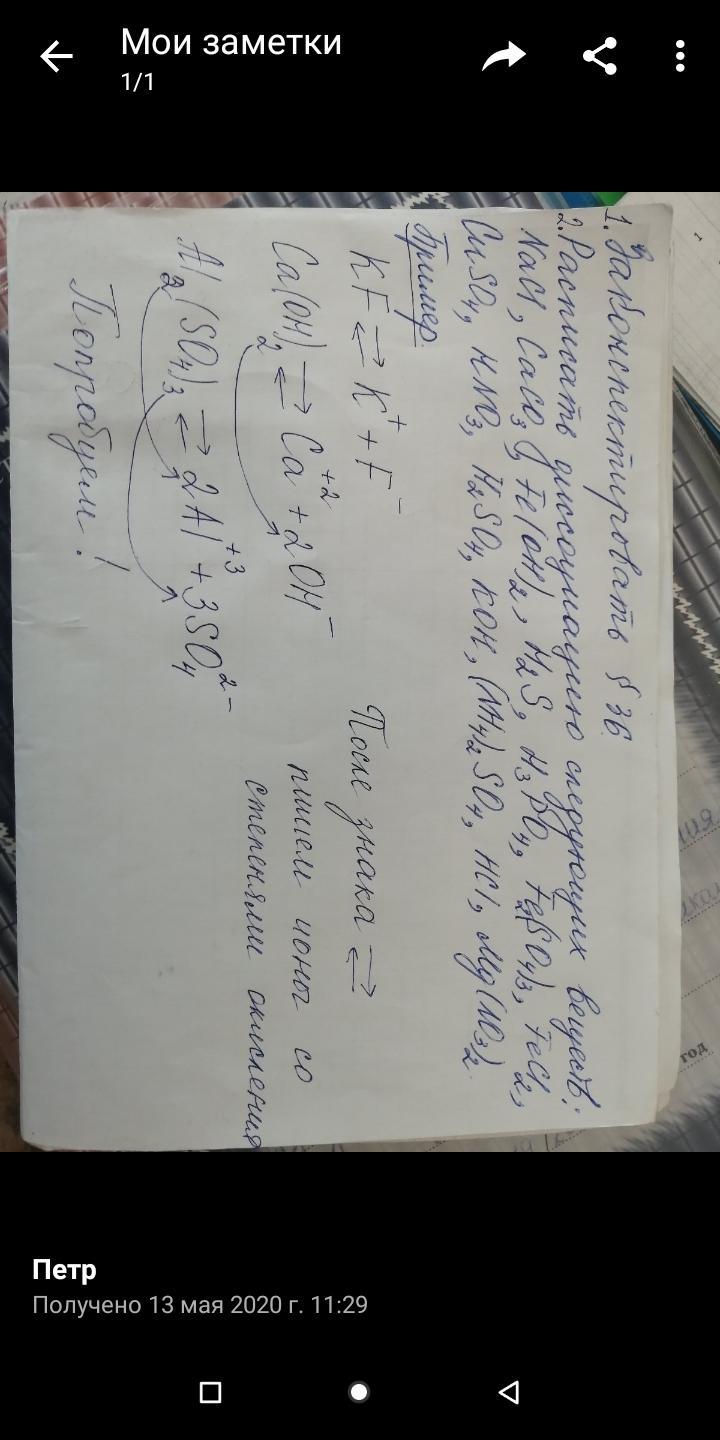 Мои заметки
1/1
1. Законспектировать § 36
2. Расписать диссоциацию следующих веществ:
NaCl, CaCO₃, Fe(OH)₂, H₂S, H₃PO₄, Fe₂(SO₄)₃, FeCl₂,
CuSO₄, HNO₃, H₂SO₄, KOH, (NH₄)₂SO₄, HCl, Mg(NO₃)₂.
Пример
KF ⇄ K⁺ + F⁻
Ca(OH)₂ ⇄ Ca⁺² + 2OH⁻
Al₂(SO₄)₃ ⇄ 2Al⁺³ + 3SO₄²⁻
После знака ⇄
пишем ионы со
степенями окисления
Попробуем!
год
Петр
Получено 13 мая 2020 г. 11:29